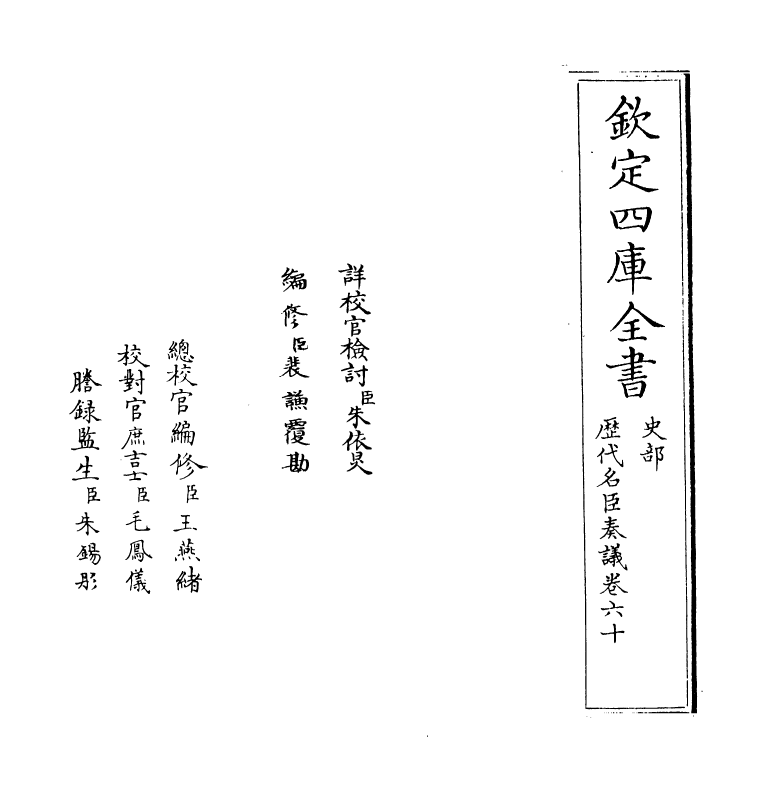 欽定四庫全書
史部
歴代名臣奏議卷六十
詳校官檢討臣朱依炅
編修臣裴謙覆勘
總校官編修臣王燕緒
校對官庶吉士臣毛鳳儀
謄録監生臣朱錫彤